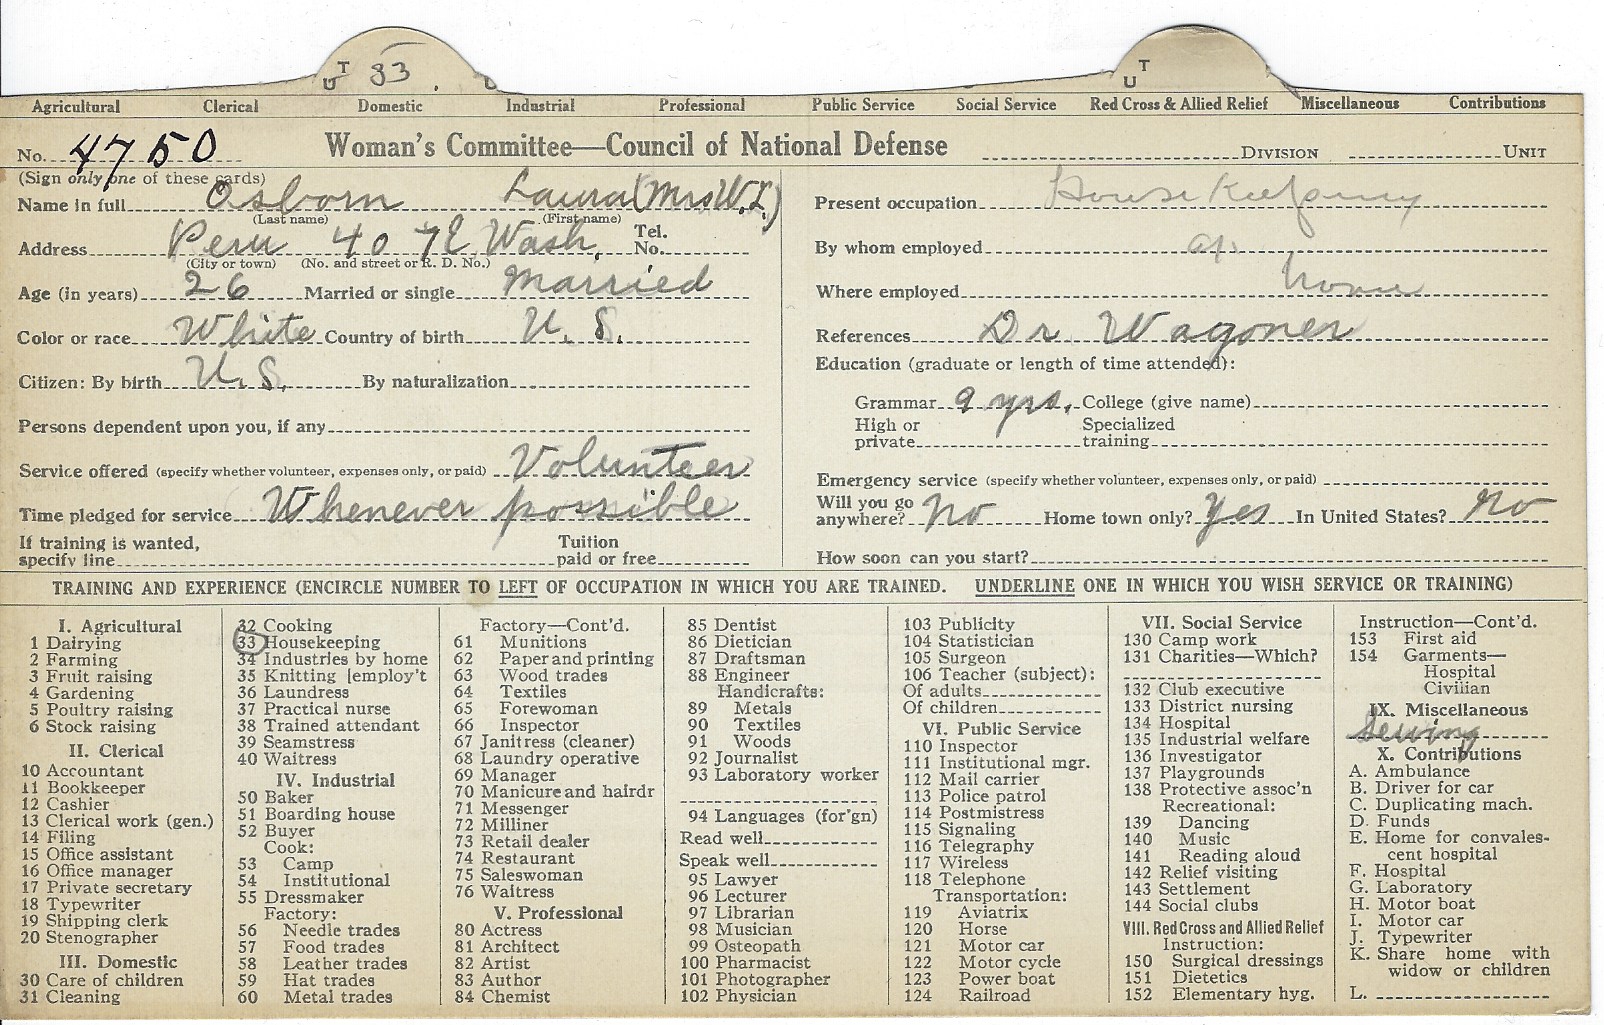 UT 33 UT
Agricultural Clerical Domestic Industrial Professional Public Service Social Service Red Cross & Allied Relief Miscellaneous Contributions
No. 4750 Woman's Committee—Council of National Defense DIVISION UNIT
(Sign only one of these cards)
Name in full Osborn Laura (Mrs W. L.)
(Last name) (First name)
Address Peru 407 E Wash. Tel. No.
(City or town) (No. and street or R. D. No.)
Age (in years) 26 Married or single Married
Color or race White Country of birth U. S.
Citizen: By birth U. S. By naturalization
Persons dependent upon you, if any
Service offered (specify whether volunteer, expenses only, or paid) Volunteer
Time pledged for service Whenever possible
If training is wanted, specify line Tuition paid or free
Present occupation House Keeping
By whom employed
Where employed
References Dr Wagoner
Education (graduate or length of time attended):
Grammar 9 yrs. College (give name)
High or private Specialized training
Emergency service (specify whether volunteer, expenses only, or paid)
Will you go anywhere? No Home town only? Yes In United States? No
How soon can you start?
TRAINING AND EXPERIENCE (ENCIRCLE NUMBER TO LEFT OF OCCUPATION IN WHICH YOU ARE TRAINED. UNDERLINE ONE IN WHICH YOU WISH SERVICE OR TRAINING)
I. Agricultural
1 Dairying
2 Farming
3 Fruit raising
4 Gardening
5 Poultry raising
6 Stock raising
II. Clerical
10 Accountant
11 Bookkeeper
12 Cashier
13 Clerical work (gen.)
14 Filing
15 Office assistant
16 Office manager
17 Private secretary
18 Typewriter
19 Shipping clerk
20 Stenographer
III. Domestic
30 Care of children
31 Cleaning
32 Cooking
33 Housekeeping
34 Industries by home
35 Knitting [employ't
36 Laundress
37 Practical nurse
38 Trained attendant
39 Seamstress
40 Waitress
IV. Industrial
50 Baker
51 Boarding house
52 Buyer
Cook:
53 Camp
54 Institutional
55 Dressmaker
Factory:
56 Needle trades
57 Food trades
58 Leather trades
59 Hat trades
60 Metal trades
Factory—Cont'd.
61 Munitions
62 Paper and printing
63 Wood trades
64 Textiles
65 Forewoman
66 Inspector
67 Janitress (cleaner)
68 Laundry operative
69 Manager
70 Manicure and hairdr
71 Messenger
72 Milliner
73 Retail dealer
74 Restaurant
75 Saleswoman
76 Waitress
V. Professional
80 Actress
81 Architect
82 Artist
83 Author
84 Chemist
85 Dentist
86 Dietician
87 Draftsman
88 Engineer
Handicrafts:
89 Metals
90 Textiles
91 Woods
92 Journalist
93 Laboratory worker
94 Languages (for'gn)
Read well
Speak well
95 Lawyer
96 Lecturer
97 Librarian
98 Musician
99 Osteopath
100 Pharmacist
101 Photographer
102 Physician
103 Publicity
104 Statistician
105 Surgeon
106 Teacher (subject):
Of adults
Of children
VI. Public Service
110 Inspector
111 Institutional mgr.
112 Mail carrier
113 Police patrol
114 Postmistress
115 Signaling
116 Telegraphy
117 Wireless
118 Telephone
Transportation:
119 Aviatrix
120 Horse
121 Motor car
122 Motor cycle
123 Power boat
124 Railroad
VII. Social Service
130 Camp work
131 Charities—Which?
132 Club executive
133 District nursing
134 Hospital
135 Industrial welfare
136 Investigator
137 Playgrounds
138 Protective assoc'n
Recreational:
139 Dancing
140 Music
141 Reading aloud
142 Relief visiting
143 Settlement
144 Social clubs
VIII. Red Cross and Allied Relief
Instruction:
150 Surgical dressings
151 Dietetics
152 Elementary hyg.
Instruction—Cont'd.
153 First aid
154 Garments—
Hospital
Civilian
IX. Miscellaneous
Sewing
X. Contributions
A. Ambulance
B. Driver for car
C. Duplicating mach.
D. Funds
E. Home for convales-
cent hospital
F. Hospital
G. Laboratory
H. Motor boat
I. Motor car
J. Typewriter
K. Share home with
widow or children
L.